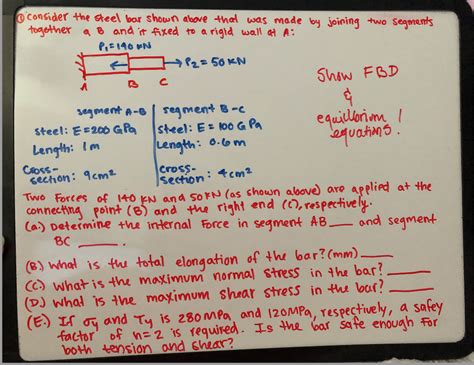 ① Consider the steel bar shown above that was made by joining two segments
together @ B and it fixed to a rigid wall at A:
P₁=140 KN
→ P₂ = 50 KN
A B C
Show FBD
&
equilibrium
equations!
segment A-B
Steel: E=200 GPa
Length: 1m
Cross-
section: 9cm²
segment B-C
Steel: E=100 GPa
Length: 0.6m
Cross-
section: 4cm²
Two Forces of 140 KN and 50 KN (as shown above) are applied at the
connecting point (B) and the right end (C), respectively.
(a.) Determine the internal Force in segment AB___ and segment
BC ____.
(B.) What is the total elongation of the bar? (mm)____
(C.) What is the maximum normal stress in the bar? ____
(D.) What is the maximum shear stress in the bar? ____
(E.) If σy and Ty is 280MPa and 120MPa, respectively, a safey
factor of n=2 is required. Is the bar safe enough For
both tension and shear?